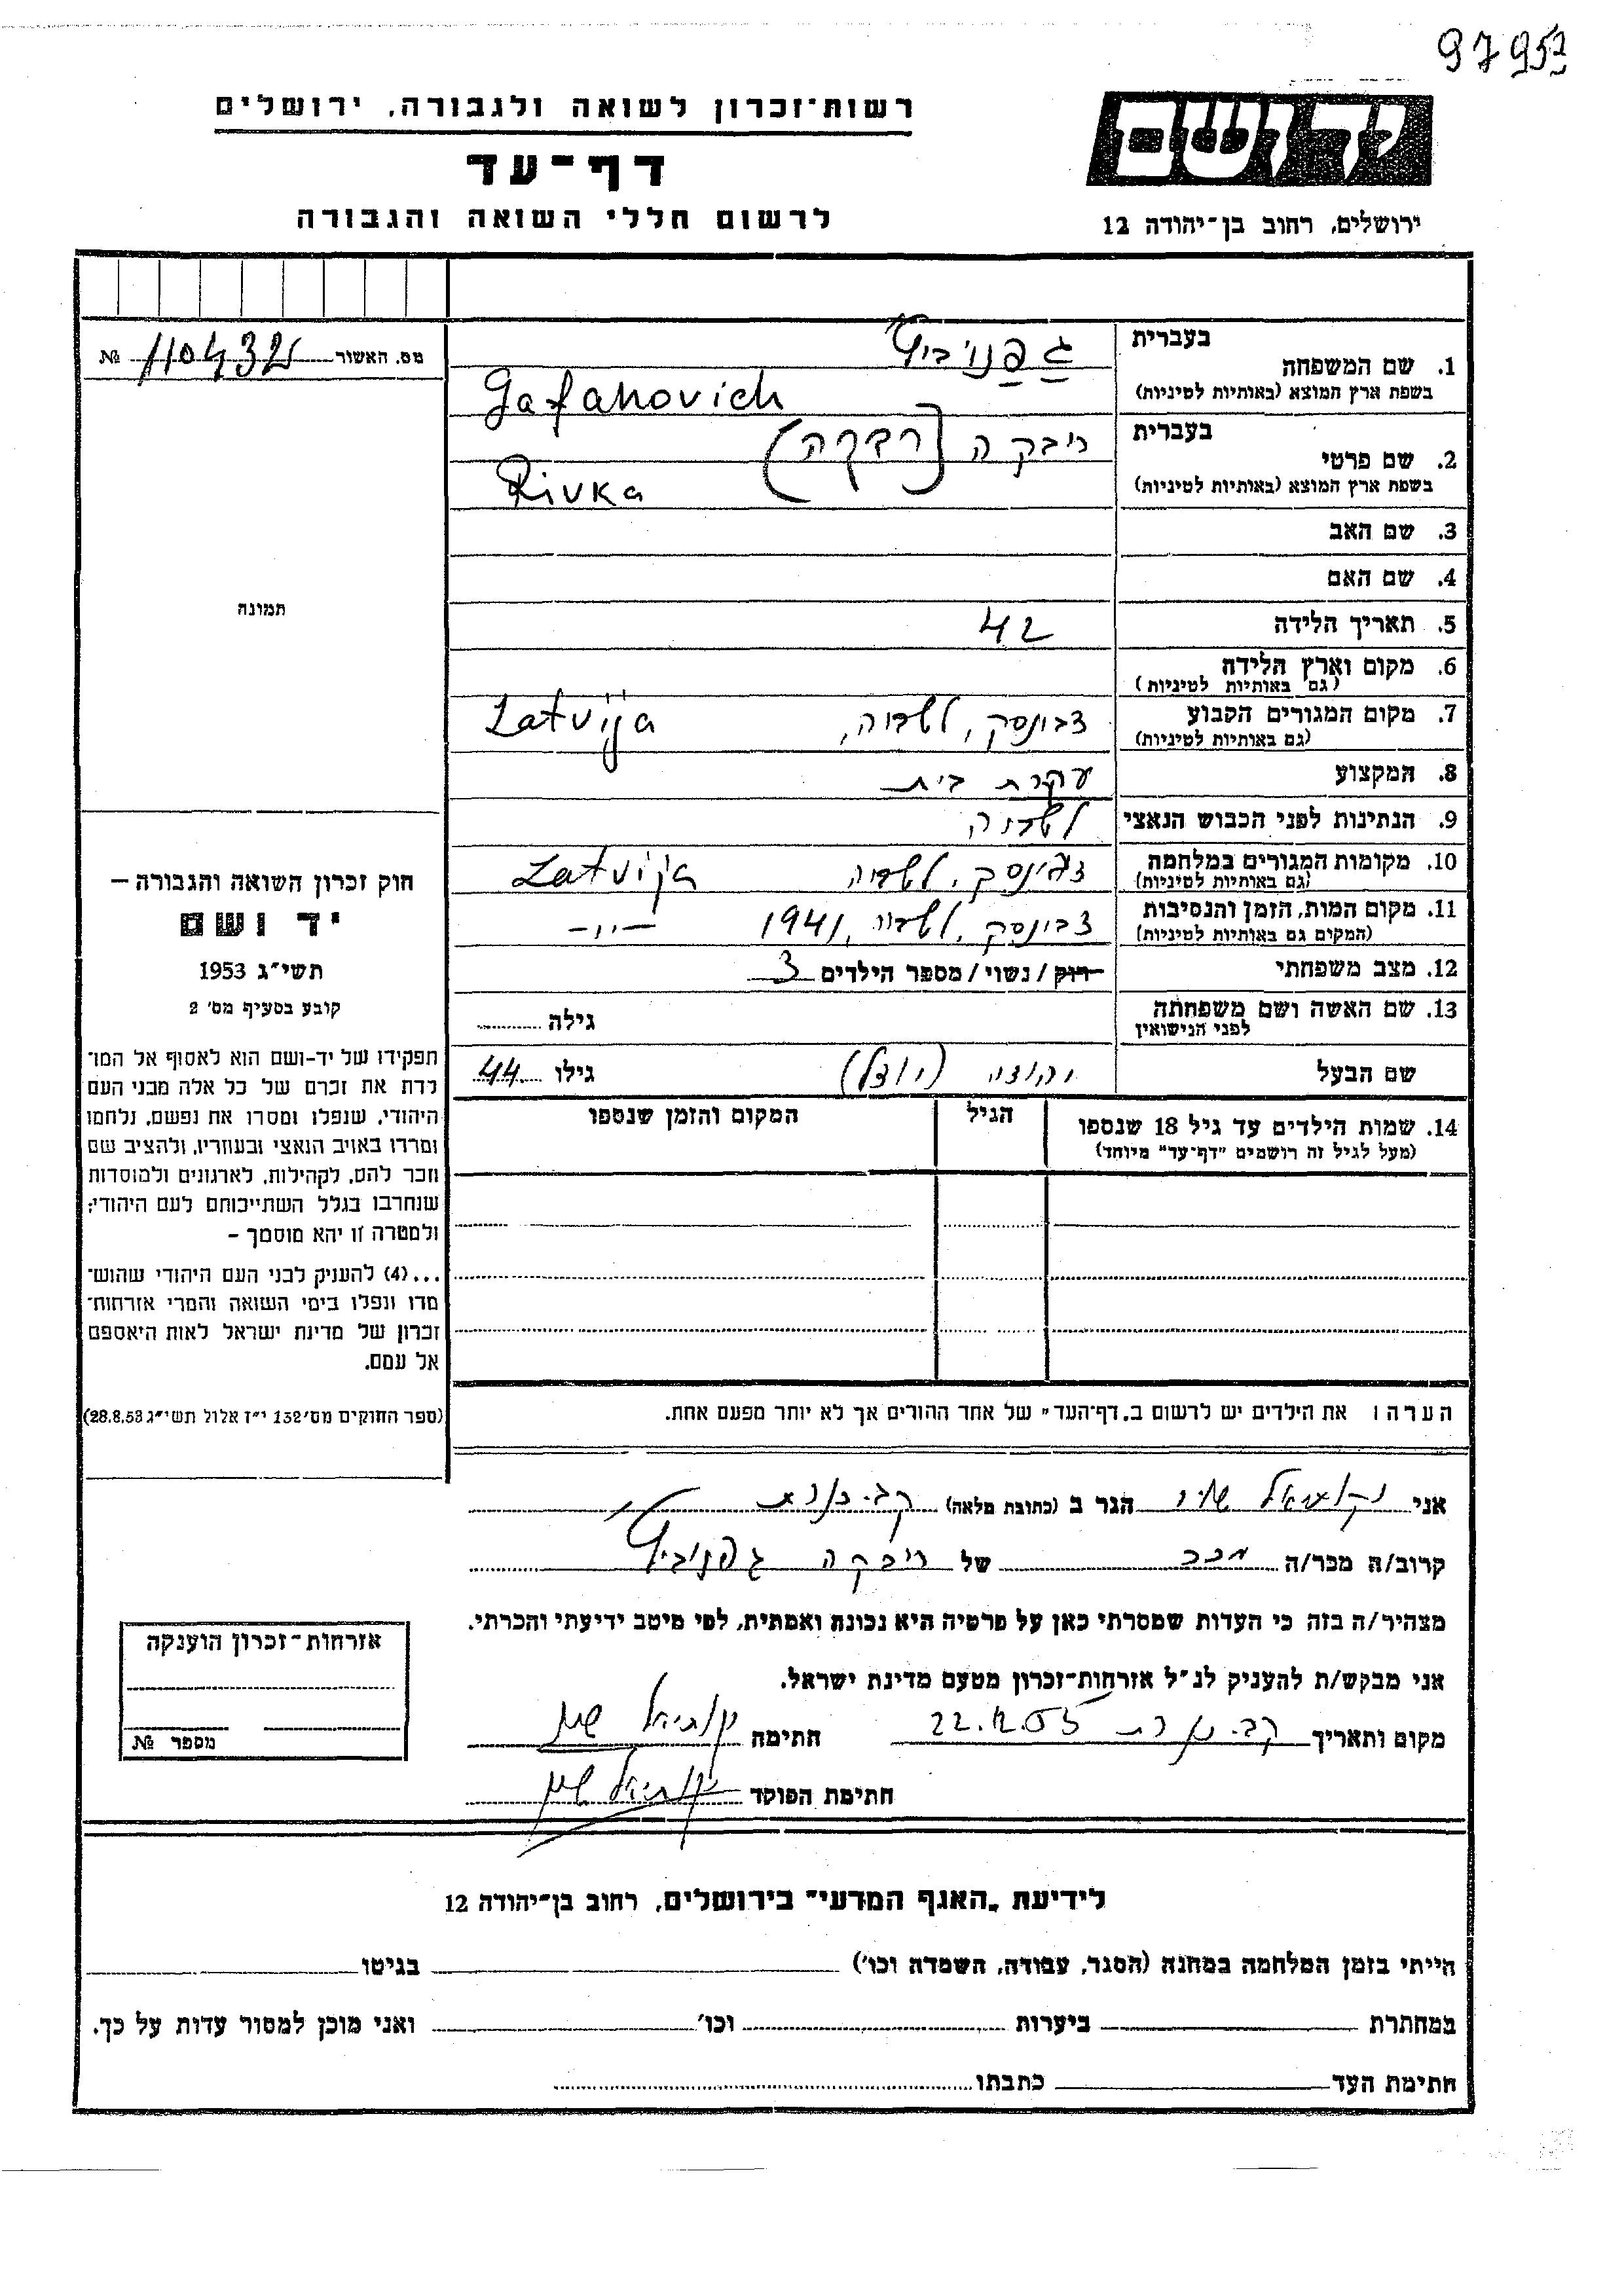 97952
רשות־זכרון לשואה ולגבורה, ירושלים
יד ושם
דף־עד
לרשום חללי השואה והגבורה
ירושלים, רחוב בן־יהודה 12
מס. האשור № 110432
1. שם המשפחה בעברית גפנוביץ
בשפת ארץ המוצא (באותיות לטיניות) Gafanovich
2. שם פרטי בעברית ריבקה (רבקה)
בשפת ארץ המוצא (באותיות לטיניות) Rivka
3. שם האב
4. שם האם
תמונה
5. תאריך הלידה 42
6. מקום וארץ הלידה
(גם באותיות לטיניות)
7. מקום המגורים הקבוע דבינסק, לטביה, Latvija
(גם באותיות לטיניות)
8. המקצוע עקרת בית
9. הנתינות לפני הכבוש הנאצי לטביה
10. מקומות המגורים במלחמה דבינסק, לטביה Latvija
(גם באותיות לטיניות)
11. מקום המות, הזמן והנסיבות דבינסק, לטביה, 1941 -"-
(המקום גם באותיות לטיניות)
12. מצב משפחתי רוק / נשוי / מספר הילדים 3
13. שם האשה ושם משפחתה גילה
לפני הנישואין
שם הבעל יהודה (יודל) גילו 44
14. שמות הילדים עד גיל 18 שנספו הגיל המקום והזמן שנספו
(מעל לגיל זה רושמים "דף־עד" מיוחד)
חוק זכרון השואה והגבורה –
יד ושם
תשי״ג 1953
קובע בסעיף מס׳ 2
תפקידו של יד-ושם הוא לאסוף אל המו־
לדת את זכרם של כל אלה מבני העם
היהודי, שנפלו ומסרו את נפשם, נלחמו
ומרדו באויב הנאצי ובעוזריו, ולהציב שם
וזכר להם, לקהילות, לארגונים ולמוסדות
שנחרבו בגלל השתייכותם לעם היהודי;
ולמטרה זו יהא מוסמך –
...(4) להעניק לבני העם היהודי שהוש־
מדו ונפלו בימי השואה והמרי אזרחות־
זכרון של מדינת ישראל לאות היאספם
אל עמם.
(ספר החוקים מס׳ 132 י״ז אלול תשי״ג 28.8.53)
הערה: את הילדים יש לרשום ב„דף־העד״ של אחד ההורים אך לא יותר מפעם אחת.
אני יקותיאל הגר ב (כתובת מלאה) קב.
קרוב/ה מכר/ה מכר של ריבקה גפנוביץ
מצהיר/ה בזה כי העדות שמסרתי כאן על פרטיה היא נכונה ואמתית, לפי מיטב ידיעתי והכרתי.
אני מבקש/ת להעניק לנ״ל אזרחות־זכרון מטעם מדינת ישראל.
מקום ותאריך קב. 22.12.55 חתימה יקותיאל
חתימת הפוקד יקותיאל
אזרחות־זכרון הוענקה
מספר №
לידיעת „האגף המדעי״ בירושלים, רחוב בן־יהודה 12
הייתי בזמן המלחמה במחנה (הסגר, עבודה, השמדה וכו׳) בגיטו
במחתרת ביערות וכו׳ ואני מוכן למסור עדות על כך.
חתימת העד כתבתו